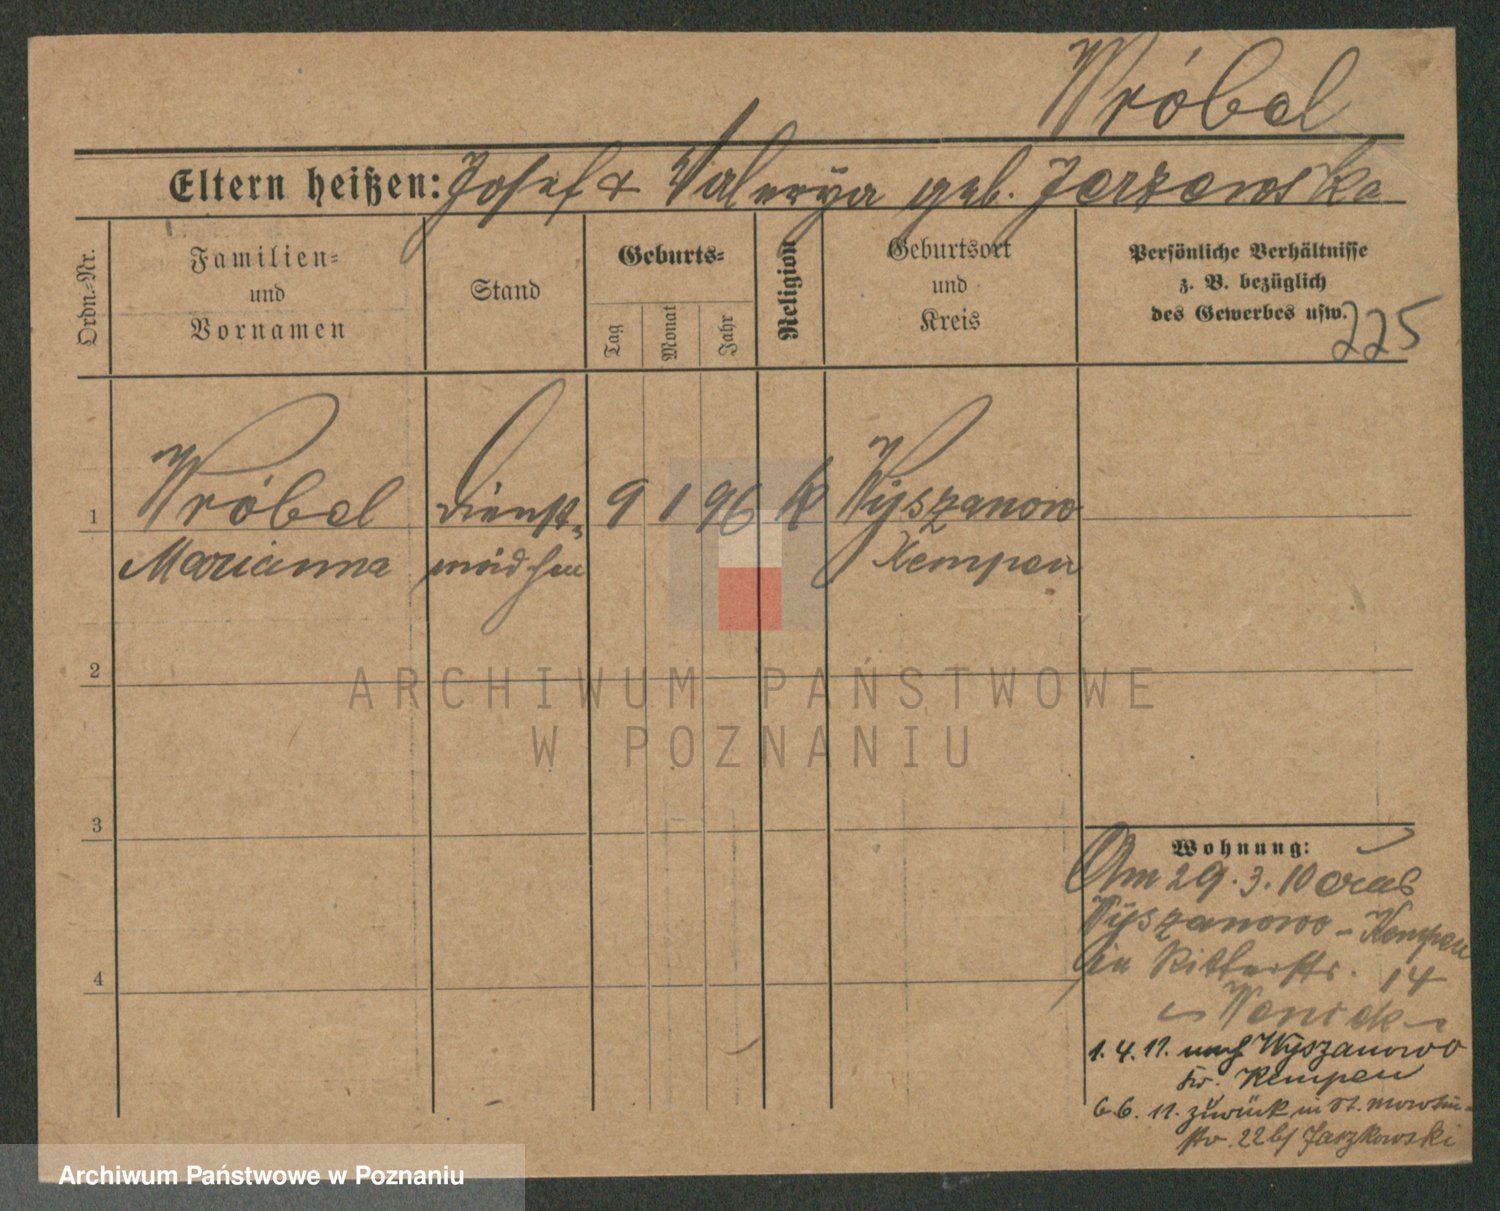 Wróbel
Eltern heißen: Josef & Valerya geb. Jerzowska
Ordn.-Nr.
Familien-
und
Vornamen
Stand
Geburts-
Tag
Monat
Jahr
Religion
Geburtsort
und
Kreis
Persönliche Verhältnisse
z. B. bezüglich
des Gewerbes usw.
225
1
Wróbel
Marianna
Dienst-
mädchen
9 1 96 K
Wyszanow
Kempen
2
3
4
Wohnung:
Am 29. 3. 10 aus
Wyszanowo - Kempen
in Ritterstr. 14
1. 4. 11. nach Wyszanowo
Kr. Kempen
6. 6. 11. zurück in St. Martin-
str. 22 b/ Jaszkowski
ARCHIWUM PAŃSTWOWE
W POZNANIU
Archiwum Państwowe w Poznaniu